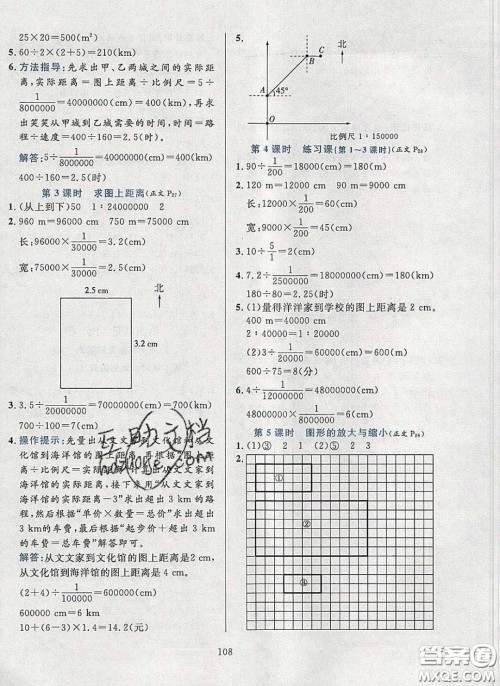 25×20=500(m²)
5. 60÷2×(2+5)=210(km)
6. 方法指导:先求出甲、乙两城之间的实际距
离,实际距离=图上距离÷比例尺=5÷
1/8000000=40000000(cm)=400(km),再求
出笑笑从甲城到乙城需要的时间,时间=路
程÷速度=400÷160=2.5(时)
解答:5÷1/8000000=40000000(cm)=400(km)
400÷160=2.5(时)
第3课时 求图上距离(正文 P27)
1. (从上到下)50 1:24000000 2
2. 960 m=96000 cm 750 m=75000 cm
长:96000×1/30000=3.2(cm)
宽:75000×1/30000=2.5(cm)
2.5 cm
北
3.2 cm
3. 3.5÷1/20000000=70000000(cm)=700(km)
700÷100=7(时)
4. 操作提示:先量出从文文家到文化馆和从文
化馆到海洋馆的图上距离,计算出从文文家到
海洋馆的实际距离,再根据"从文文家到
海洋馆的实际距离-3"求出超出 3 km 的部
分,然后根据"单价×数量=总价"求出超出
3 km 的车费,最后根据"起步价+超出 3 km
的车费"解答即可。
解答:从文文家到文化馆的图上距离是2 cm,
从文化馆到海洋馆的图上距离是 4 cm。
(2+4)÷1/100000=600000(cm)
600000 cm=6 km
10+(6-3)×1.4=14.2(元)
5.
北
B
C
A
45°
O
比例尺 1:150000
第4课时 练习课(第1~3课时)(正文 P28)
1. 90÷1/2=180(mm)=18(cm)
2. 120 m=12000 cm 90 m=9000 cm
长:12000×1/2000=6(cm)
宽:9000×1/2000=4.5(cm)
3. 10÷5/1=2(cm)
4. 7.2÷1/2500000=18000000(cm)=180(km)
180÷80=2.25(时)
5. (1)量得洋洋家到学校的图上距离是 2 cm。
400 m=40000 cm
2:40000=1:20000
(2)3÷1/20000=60000(cm)=600(m)
600÷75=8(分)
6. 4÷1/12000000=48000000(cm)
48000000×1/8000000=6(cm)
第5课时 图形的放大与缩小(正文 P29)
1. (1)③ 2 1 (2)⑤ 3 2
2.
①
②
③
108
互助文档
答案圈
MXQE.COM